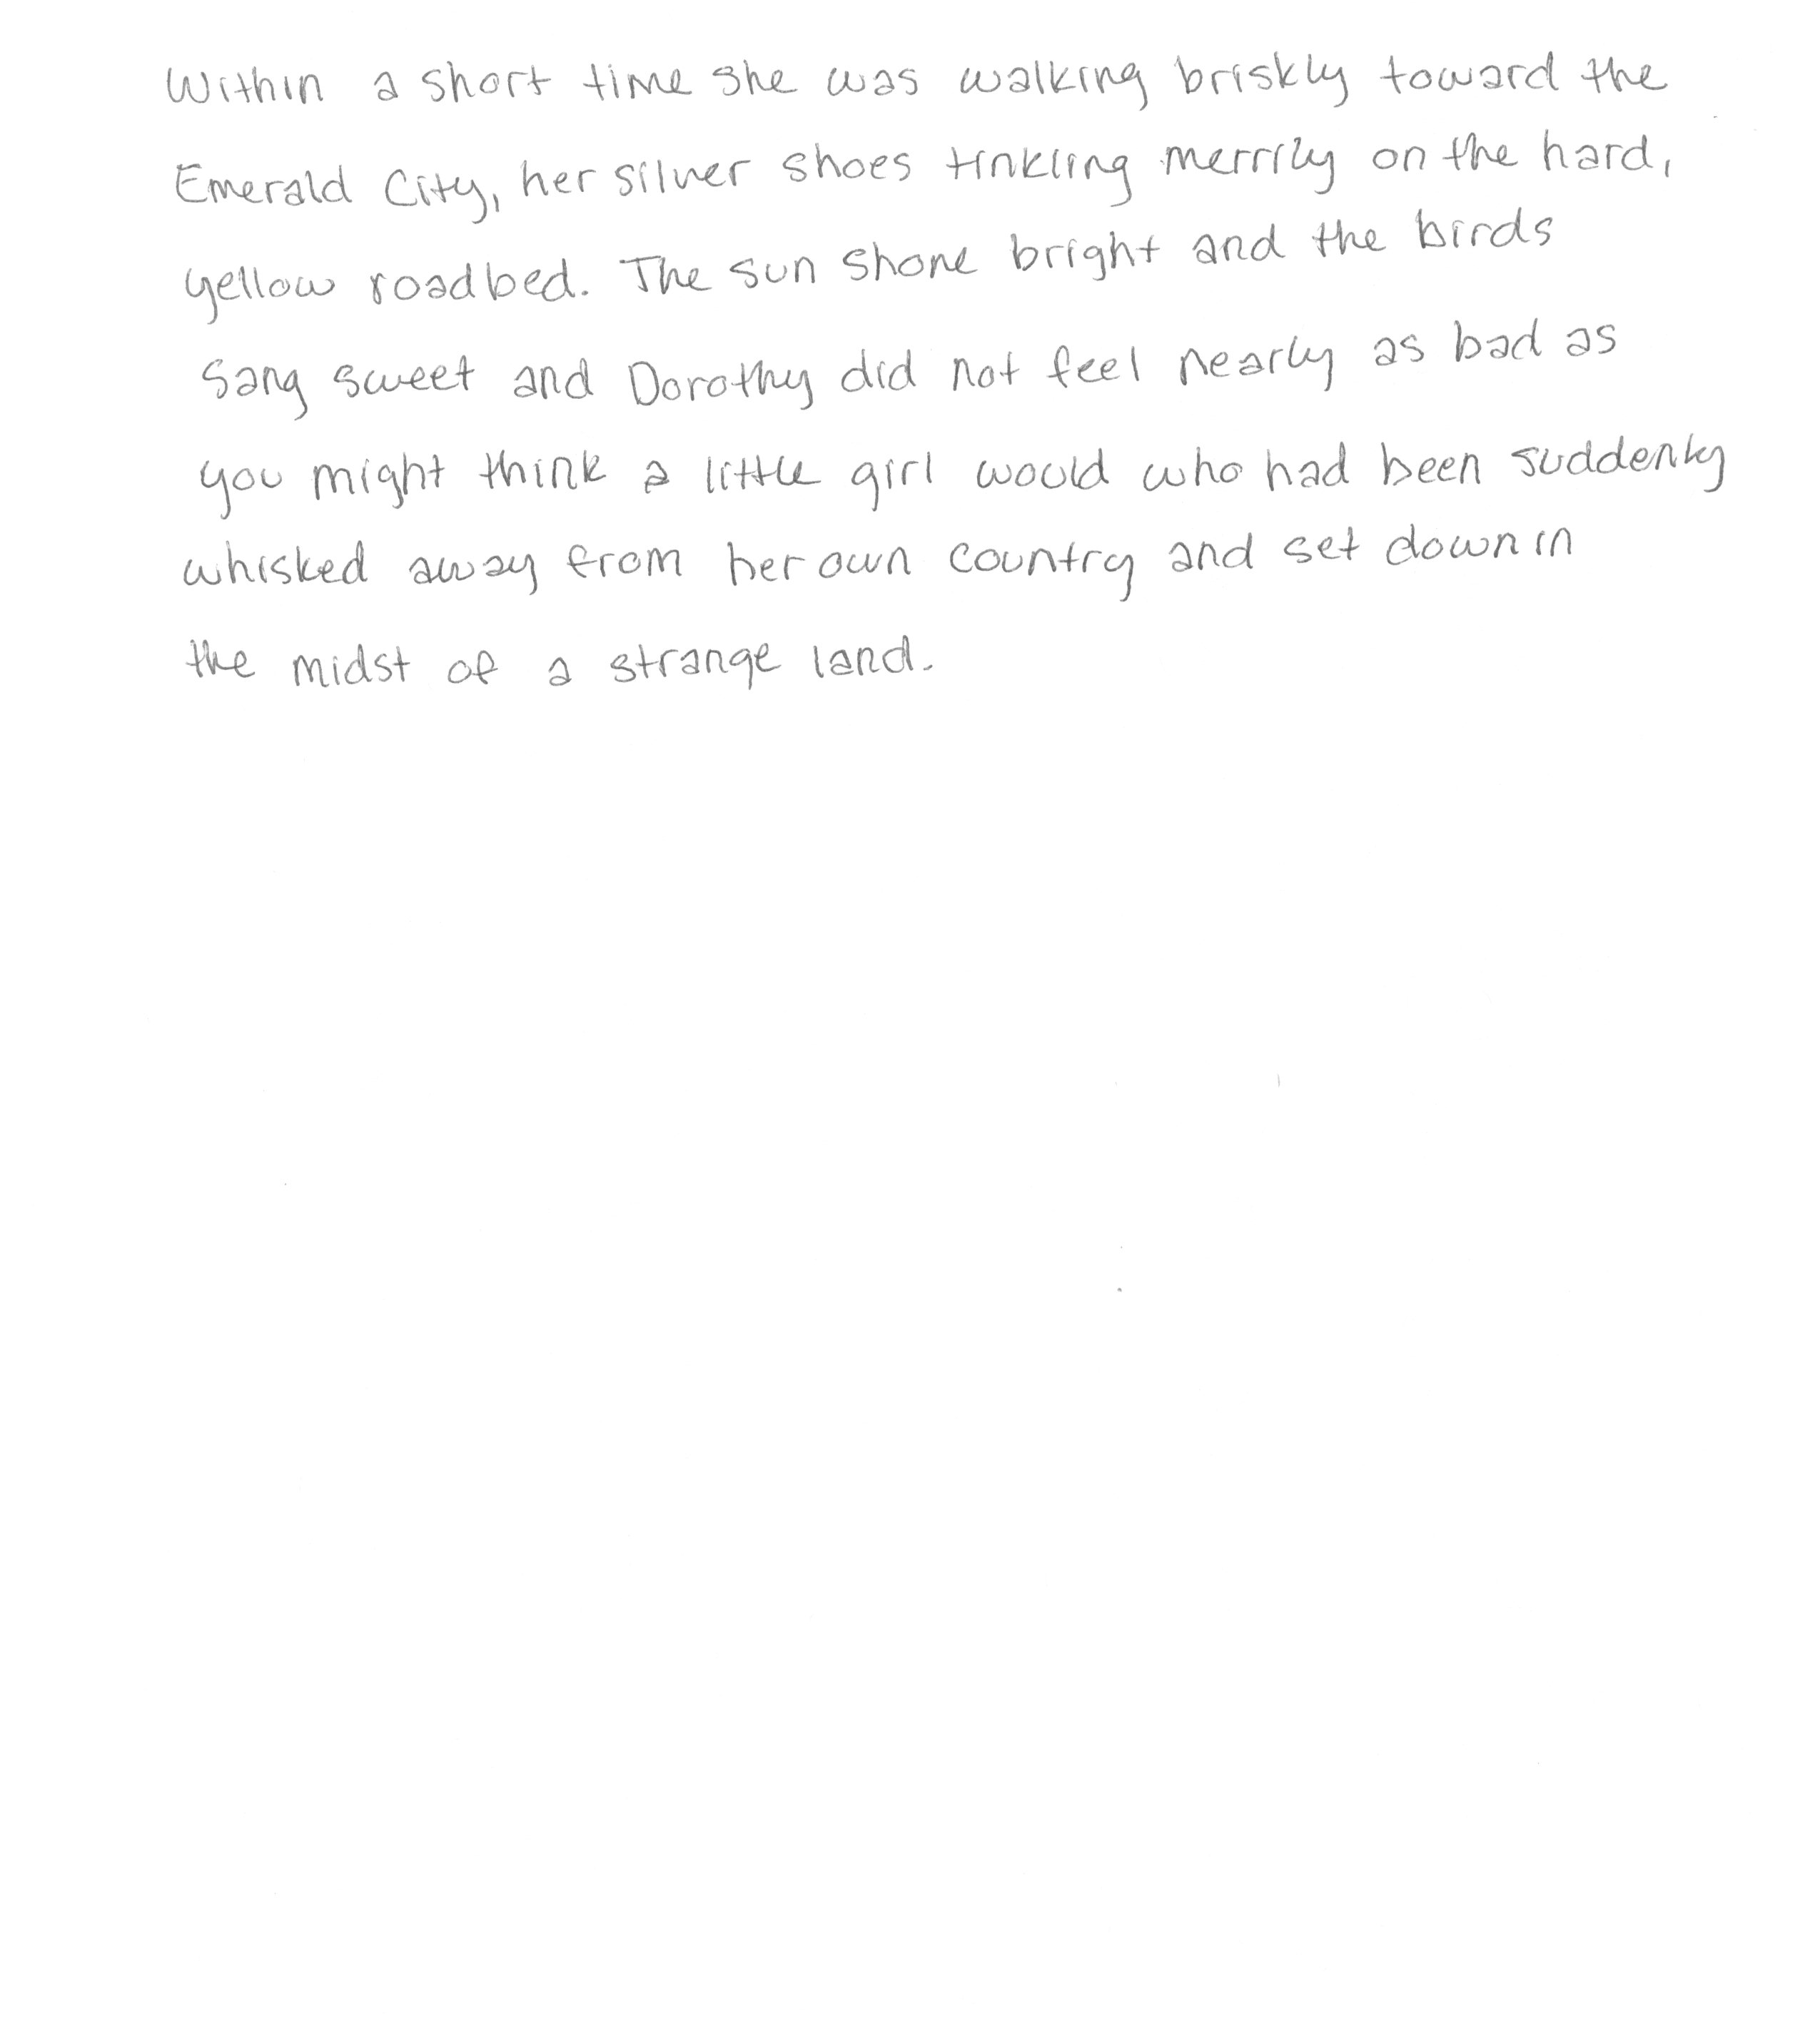 Within a short time she was walking briskly toward the
Emerald City, her silver shoes tinkling merrily on the hard,
yellow roadbed. The sun shone bright and the birds
sang sweet and Dorothy did not feel nearly as bad as
you might think a little girl would who had been suddenly
whisked away from her own country and set down in
the midst of a strange land.